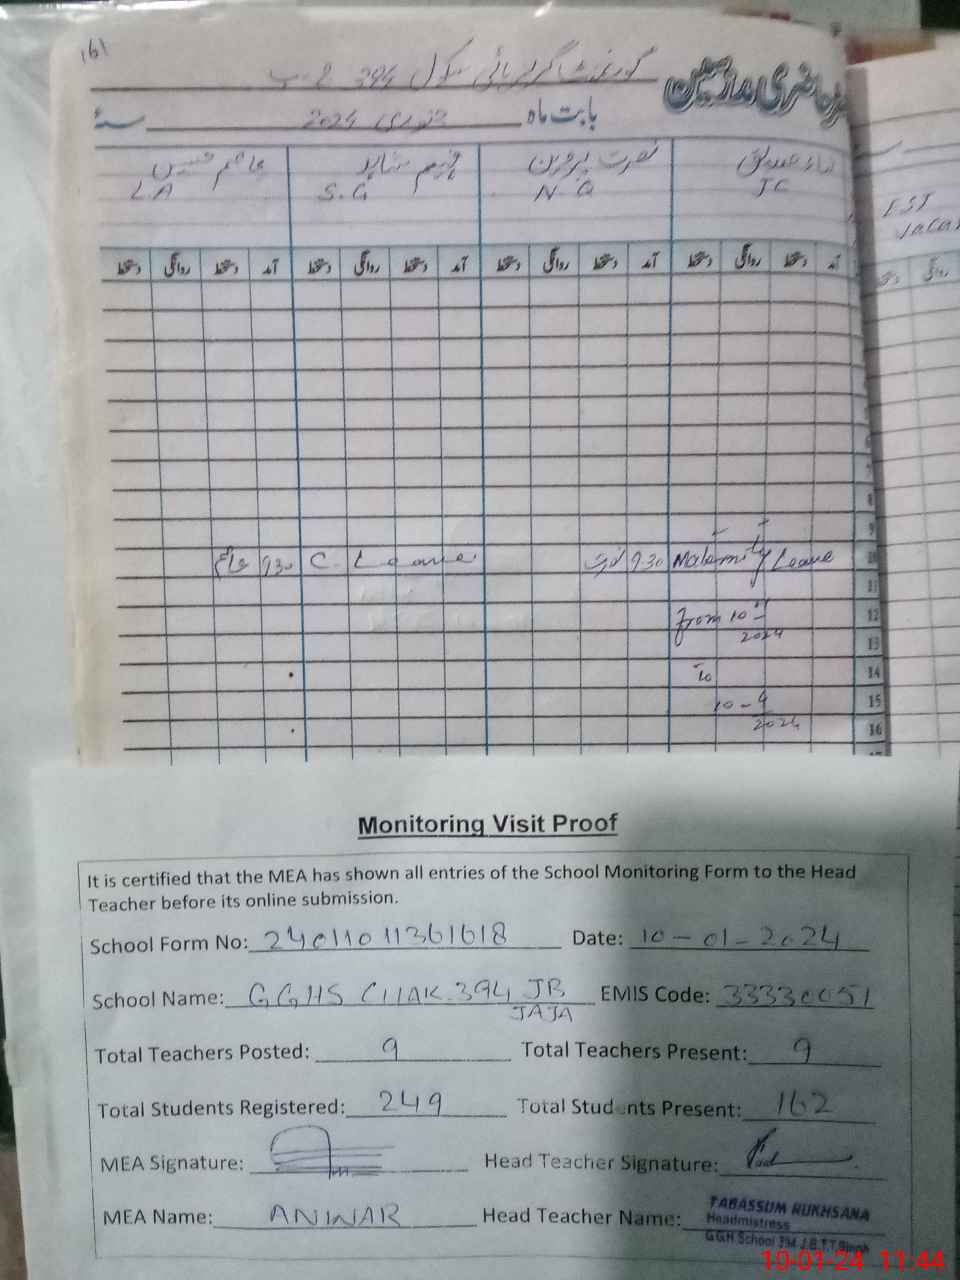 161
گورنمنٹ گرلز ہائی سکول 394 ج ب
حاضری مدرسین
بابت ماہ جنوری 2024 سنہ
عاصم حسین نصرت پروین
L.A S.G N.Q JC EST
دستخط روانگی دستخط آمد دستخط روانگی دستخط آمد دستخط روانگی دستخط آمد دستخط روانگی دستخط آمد
8
9
930 C. Leave 930 Maternity Leave 10
11
from 10-1 12
2024 13
to 14
10-9 15
2024 16
Monitoring Visit Proof
It is certified that the MEA has shown all entries of the School Monitoring Form to the Head
Teacher before its online submission.
School Form No: 24011011361618 Date: 10-01-2024
School Name: GGHS CHAK.394 JB EMIS Code: 33330051
JAJA
Total Teachers Posted: 9 Total Teachers Present: 9
Total Students Registered: 249 Total Students Present: 162
MEA Signature: Head Teacher Signature:
MEA Name: ANWAR Head Teacher Name: TABASSUM RUKHSANA
Headmistress
G.G.H School 394 J.B.T.T.Singh
10-01-24 11:44